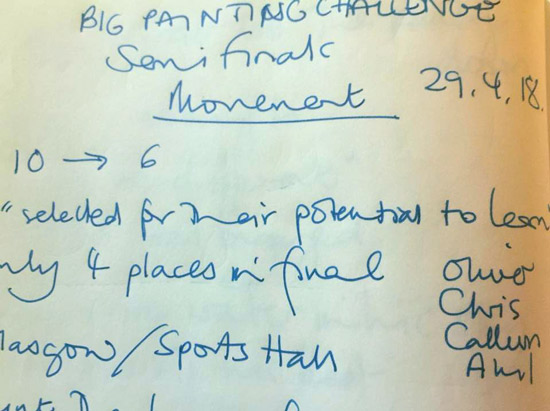 BIG PAINTING CHALLENGE
Semi finals
Movement
29.4.18.
10 → 6
"selected for their potential to learn"
only 4 places in final
Oliver
Chris
Callum
Anil
Glasgow/Sports Hall